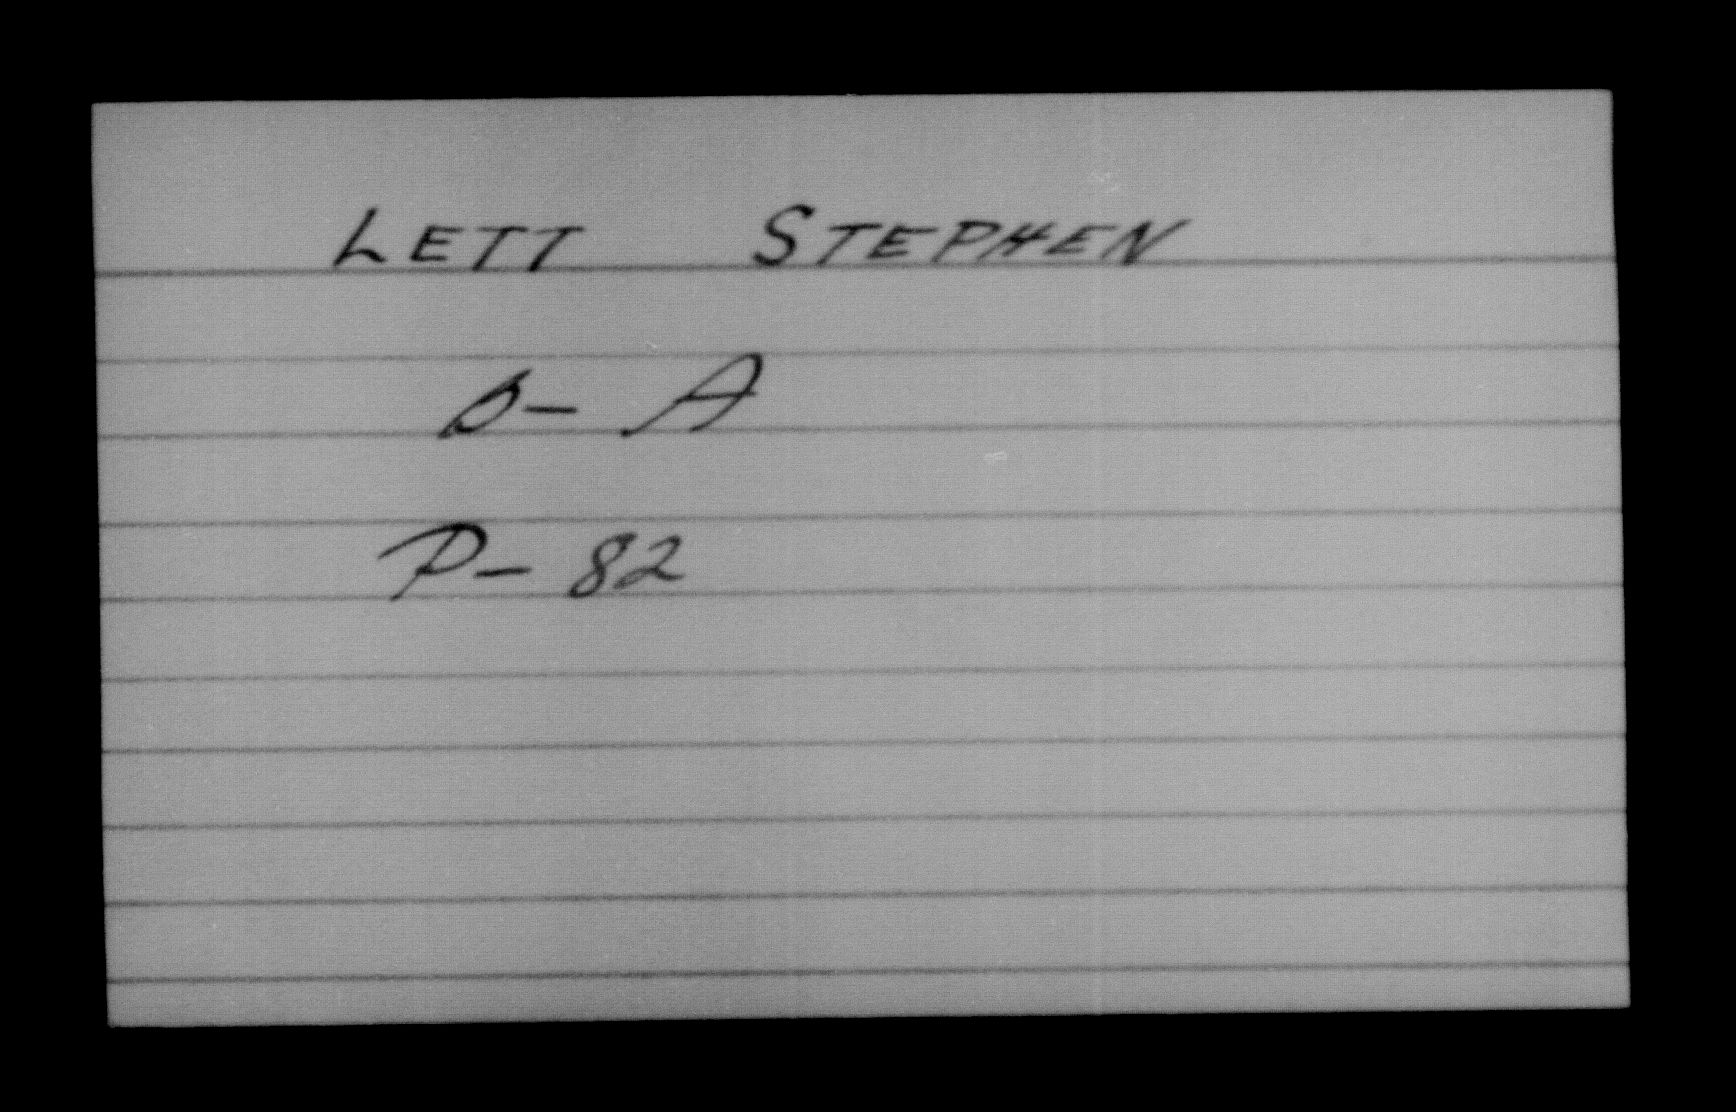 LETT STEPHEN
B- A
P- 82